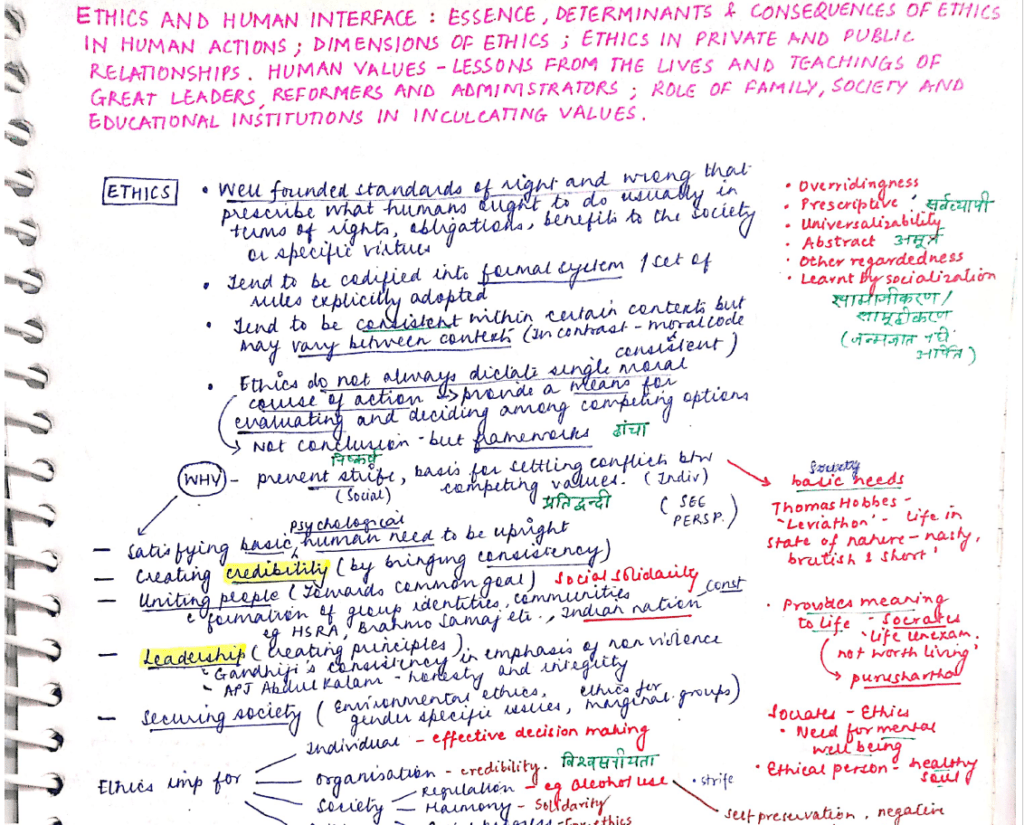 ETHICS AND HUMAN INTERFACE : ESSENCE, DETERMINANTS & CONSEQUENCES OF ETHICS
IN HUMAN ACTIONS ; DIMENSIONS OF ETHICS ; ETHICS IN PRIVATE AND PUBLIC
RELATIONSHIPS. HUMAN VALUES - LESSONS FROM THE LIVES AND TEACHINGS OF
GREAT LEADERS, REFORMERS AND ADMINISTRATORS ; ROLE OF FAMILY, SOCIETY AND
EDUCATIONAL INSTITUTIONS IN INCULCATING VALUES.
ETHICS
• Well founded standards of right and wrong that
prescribe what humans ought to do usually in
terms of rights, obligations, benefits to the society
or specific virtues
• Tend to be codified into formal system / set of
rules explicitly adopted
• Tend to be consistent within certain contexts but
may vary between contexts (In contrast - moral code
consistent)
• Ethics do not always dictate single moral
course of action → provide a means for
evaluating and deciding among competing options
→ Not conclusion - but frameworks ढांचा
निष्कर्ष
• Overridingness
• Prescriptive • सर्वव्यापी
• Universalizability
• Abstract अमूर्त
• Other regardedness
• Learnt by socialization
सामाजीकरण /
सामूहीकरण
(जन्मजात नहीं
WHY - prevent strife, basis for settling conflicts btw
(Social) competing values. (Indiv)
प्रतिद्वन्दी (SEE
PERSP.)
Society
basic needs
Thomas Hobbes -
'Leviathon' - 'Life in
state of nature - nasty,
brutish & short'
psychological
- Satisfying basic human need to be upright
- Creating credibility (by bringing consistency)
- Uniting people (Towards common goal) Social solidarity
formation of group identities, communities const
eg HSRA, Brahmo Samaj etc., Indian nation
- Leadership (Creating principles)
- Gandhiji's consistency in emphasis of non violence
- APJ Abdul Kalam - honesty and integrity
- Securing society (Environmental ethics, ethics for
gender specific issues, marginal groups)
• Provides meaning
to life - Socrates
'Life unexam.
not worth living'
→ purushartha
Socrates - Ethics
• Need for mental
well being
• Ethical person - healthy
soul
Ethics imp for
Individual - effective decision making
Organisation - credibility. विश्वसनीयता
Society
Regulation - eg alcohol use
Harmony - Solidarity
• strife
self preservation, negative